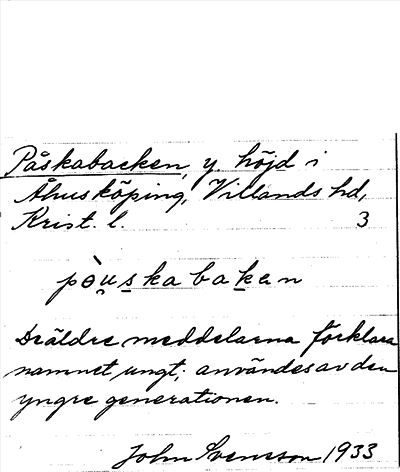 Påskabacken, y. höjd i
Åhus köping, Villands hd,
Krist. l. 3
pòu̯skabakən
De äldre meddelarna förklara
namnet ungt; användes av den
yngre generationen.
John Svensson 1933